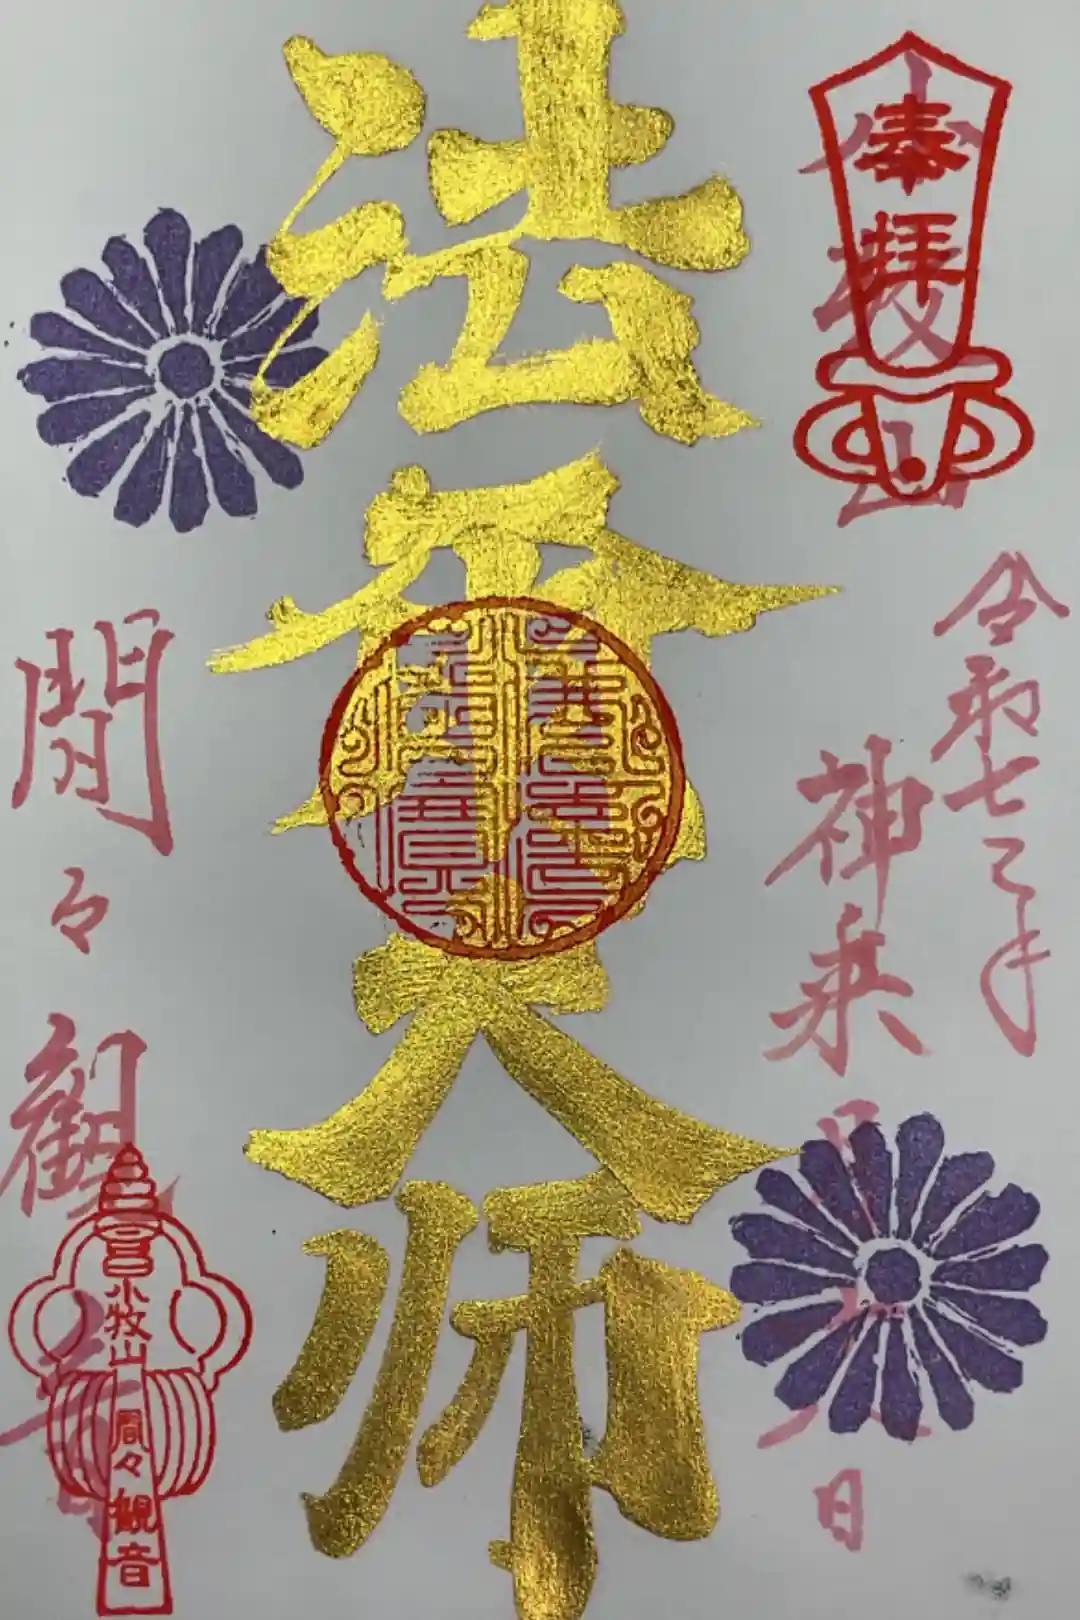 奉拝
小牧山
令和七年
神無月
日
法爾大師
間々観音
小牧山
間々観音